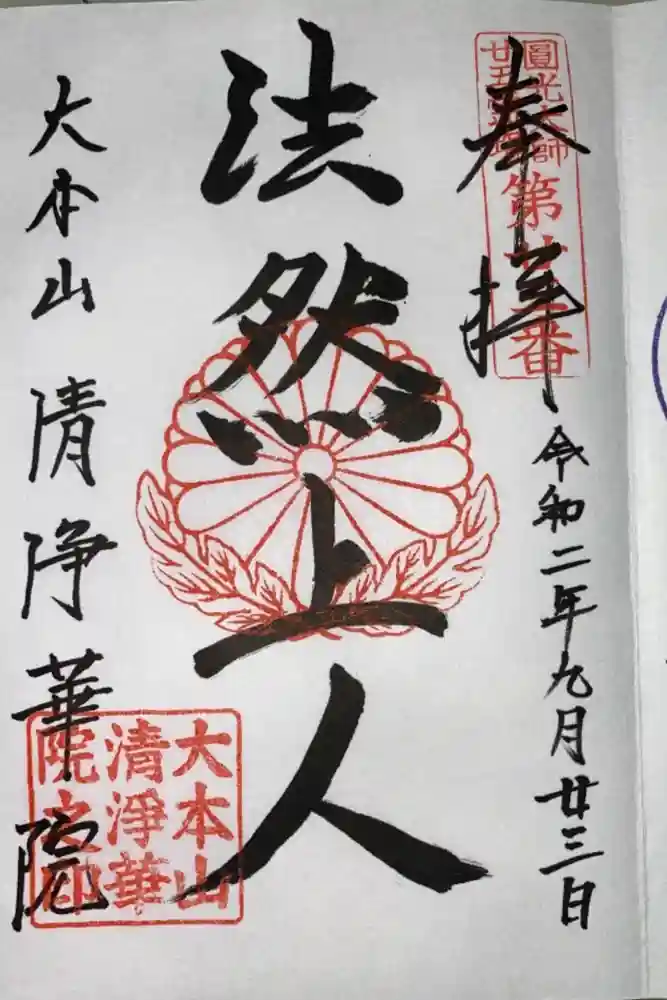 圓光大師
廿五
第廿三番
奉拝
令和二年九月廿三日
法然上人
大本山 清浄華院
大本山
清淨華
院之印